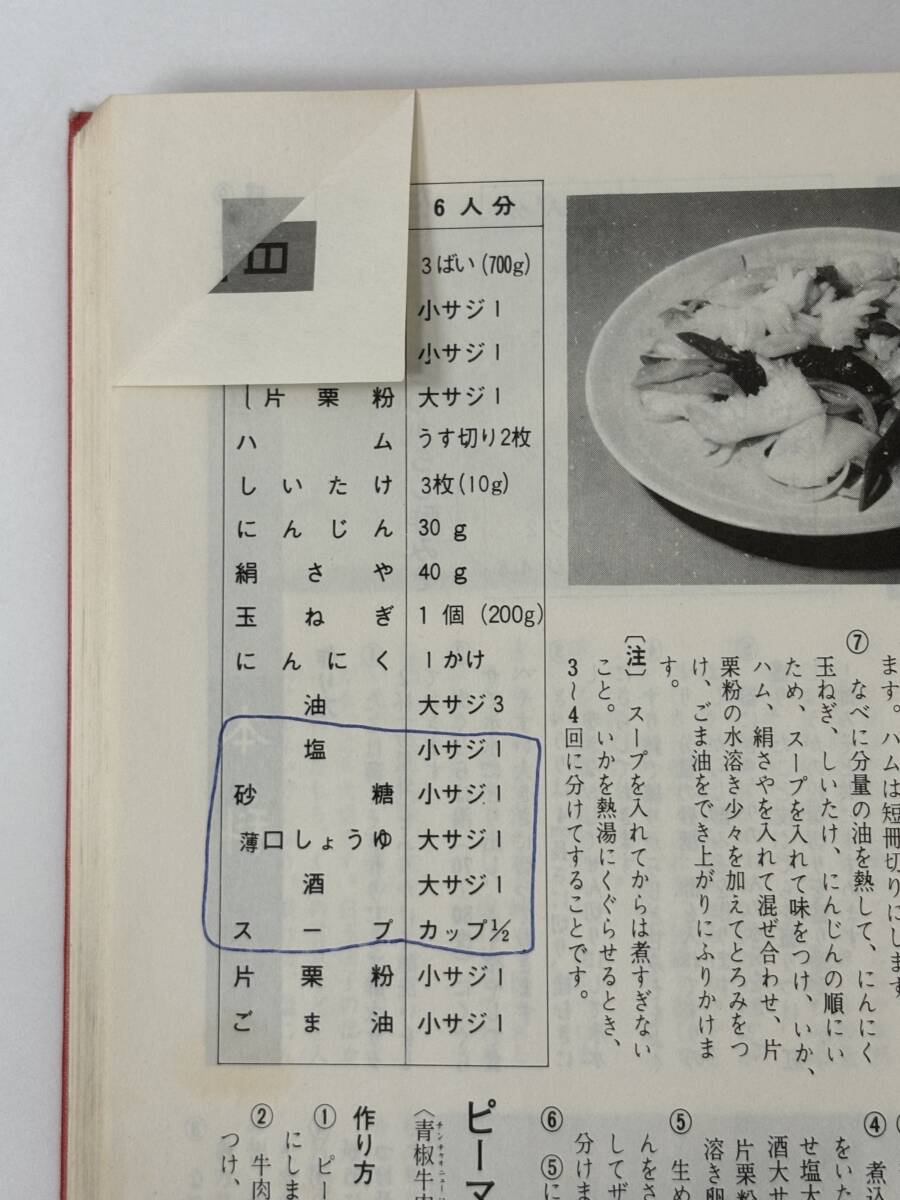 6人分
3ばい(700g)
小サジ1
小サジ1
片栗粉 大サジ1
ハム うす切り2枚
しいたけ 3枚(10g)
にんじん 30g
絹さや 40g
玉ねぎ 1個(200g)
にんにく 1かけ
油 大サジ3
塩 小サジ1
砂糖 小サジ1
薄口しょうゆ 大サジ1
酒 大サジ1
スープ カップ½
片栗粉 小サジ1
ごま油 小サジ1
ます。ハムは短冊切りにします
⑦ なべに分量の油を熱して、にんにく
玉ねぎ、しいたけ、にんじんの順にい
ため、スープを入れて味をつけ、いか、
ハム、絹さやを入れて混ぜ合わせ、片
栗粉の水溶き少々を加えてとろみをつ
け、ごま油をでき上がりにふりかけま
す。
〔注〕 スープを入れてからは煮すぎない
こと。いかを熱湯にくぐらせるとき、
3〜4回に分けてすることです。
④ 煮込
をいた
せ塩大
酒大サ
片栗粉
溶き卵
⑤ 生め
んをさ
してザ
分けま
⑥ ⑤に
ピーマ
〈青椒牛肉
チンチャオニュー
作り方
① ピー
にしま
② 牛肉
つけ、